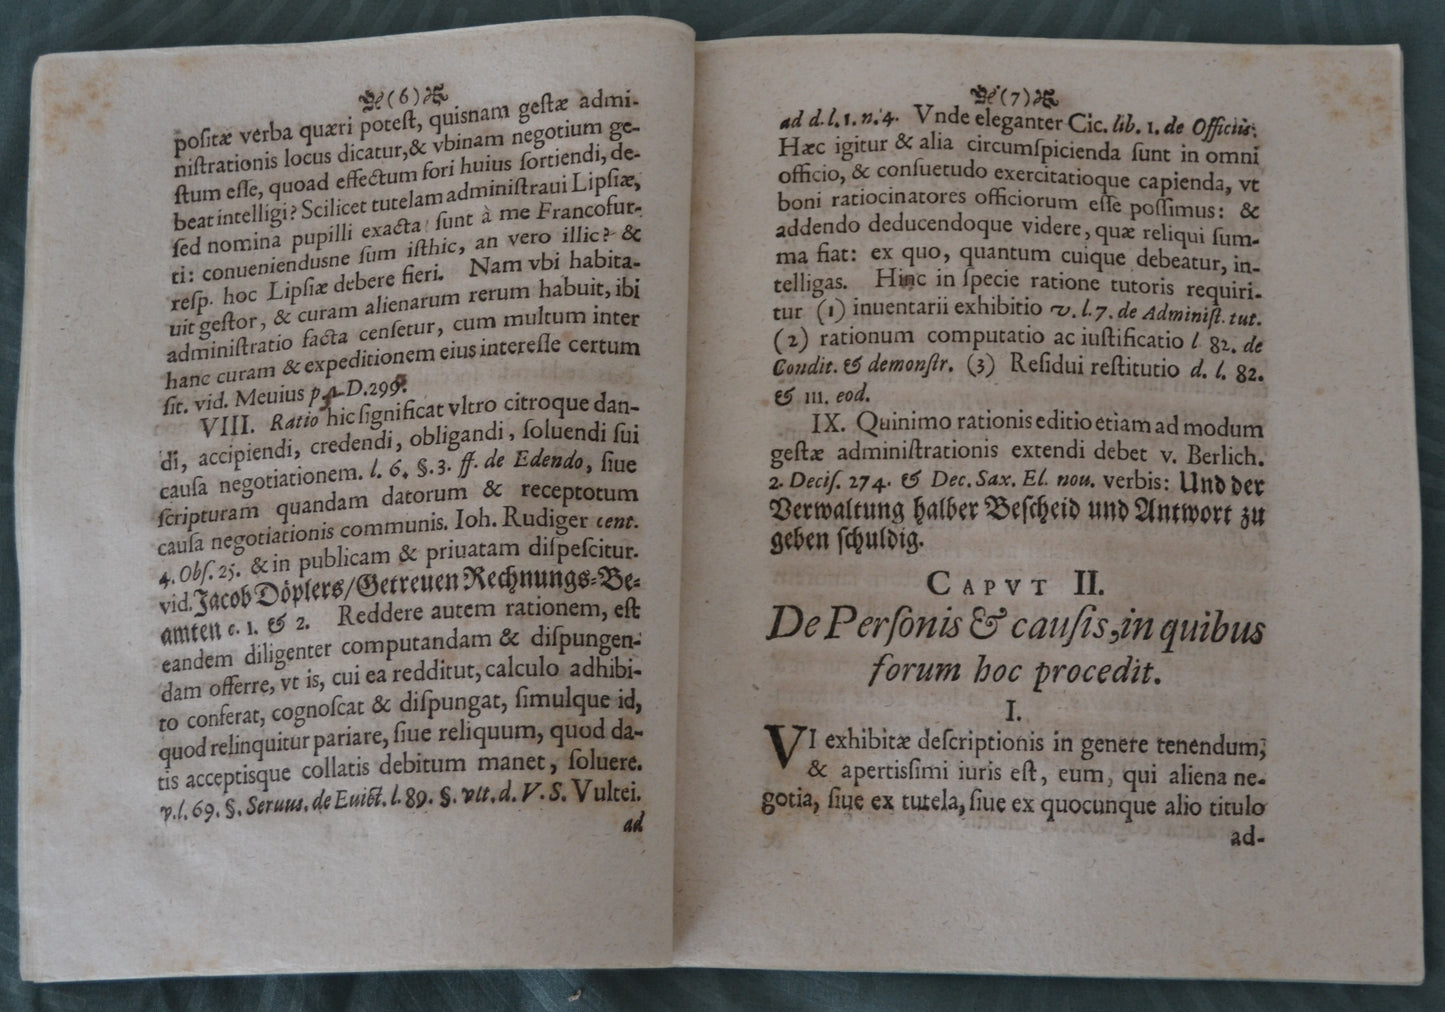 (6)
poſitæ verba quæri poteſt, quisnam geſtæ admi-
niſtrationis locus dicatur,& vbinam negotium ge-
ſtum eſſe, quoad effectum fori huius ſortiendi, de-
beat intelligi? Scilicet tutelam adminiſtraui Lipſiæ,
ſed nomina pupilli exacta ſunt à me Francofur-
ti: conueniendusne ſum iſthic, an vero illic? &
reſp. hoc Lipſiæ debere fieri. Nam vbi habita-
uit geſtor, & curam alienarum rerum habuit, ibi
adminiſtratio facta cenſetur, cum multum inter
hanc curam & expeditionem eius intereſſe certum
ſit. vid. Meuius D.299.
VIII. Ratio hic ſignificat vltro citroque dan-
di, accipiendi, credendi, obligandi, ſoluendi ſui
cauſa negotiationem. l. 6. §. 3. ff. de Edendo, ſiue
ſcripturam quandam datorum & receptotum
cauſa negotiationis communis. Ioh. Rudiger cent.
4. Obſ. 25. & in publicam & priuatam diſpeſcitur.
vid. Jacob Döplers/Getreuen Rechnungs-Be-
amten c. 1. & 2. Reddere autem rationem, eſt
eandem diligenter computandam & diſpungen-
dam offerre, vt is, cui ea redditut, calculo adhibi-
to conferat, cognoſcat & diſpungat, ſimulque id,
quod relinquitur pariare, ſiue reliquum, quod da-
tis acceptisque collatis debitum manet, ſoluere.
v.l. 69. §. Seruus. de Euict. l. 89. §. vlt. d. V. S. Vultei.
ad
(7)
ad d. l. 1. n. 4. Vnde eleganter Cic. lib. 1. de Officiis.
Hæc igitur & alia circumſpicienda ſunt in omni
officio, & conſuetudo exercitatioque capienda, vt
boni ratiocinatores officiorum eſſe poſſimus: &
addendo deducendoque videre, quæ reliqui ſum-
ma fiat: ex quo, quantum cuique debeatur, in-
telligas. Hinc in ſpecie ratione tutoris requiri-
tur (1) inuentarii exhibitio v. l. 7. de Adminiſt. tut.
(2) rationum computatio ac iuſtificatio l 82. de
Condit. & demonſtr. (3) Reſidui reſtitutio d. l. 82.
& 111. eod.
IX. Quinimo rationis editio etiam ad modum
geſtæ adminiſtrationis extendi debet v. Berlich.
2. Deciſ. 274. & Dec. Sax. El. nou. verbis: Und der
Verwaltung halber Beſcheid und Antwort zu
geben ſchuldig.
CAPVT II.
De Perſonis & cauſis, in quibus
forum hoc procedit.
I.
VI exhibitæ deſcriptionis in genere tenendum,
& apertisſimi iuris eſt, eum, qui aliena ne-
gotia, ſiue ex tutela, ſiue ex quocunque alio titulo
ad-